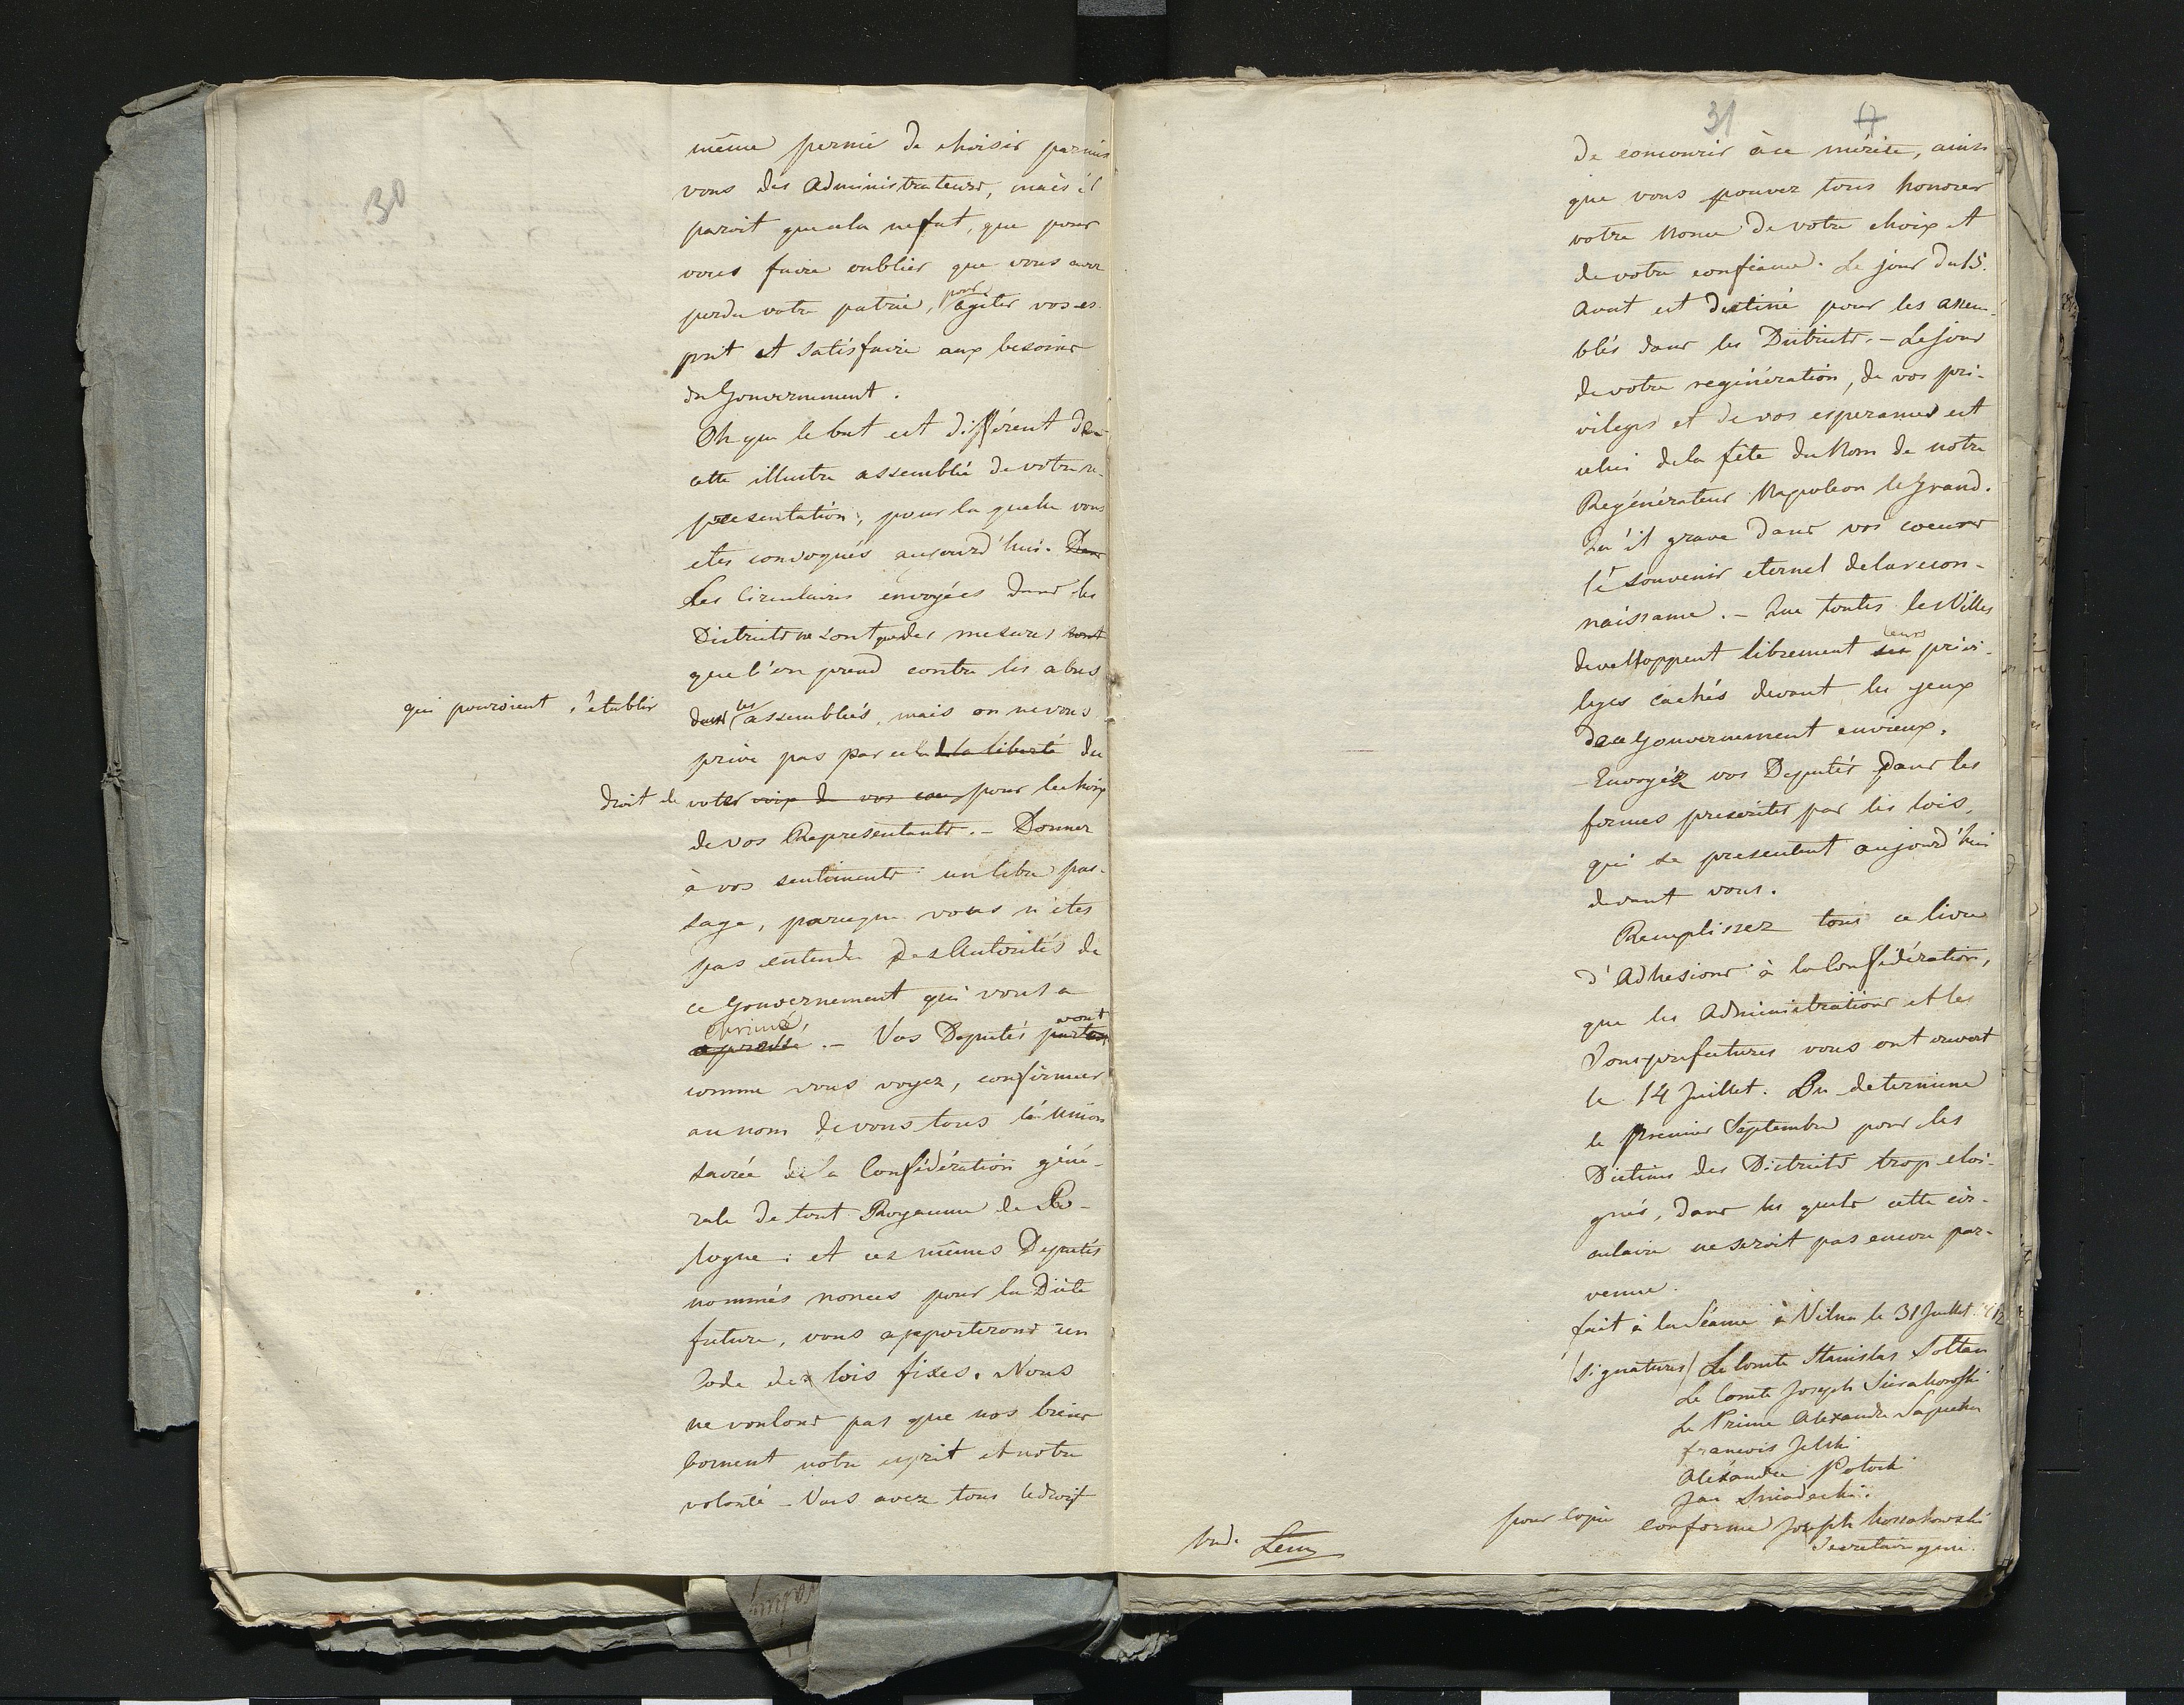 30
même permis de choisir parmis
vous des Administrateurs, mais il
paroit que cela ne fut, que pour
vous faire oublier que vous avez
perdu votre patrie, pour agiter vos es-
prit et satisfaire aux besoins
du Gouvernement.
Oh que le but est différent de
cette illustre assemblée de votre re-
presentation, pour la quelle vous
etes convoqués aujourd'hui. Dans
Les Circulaires envoyées dans les
Districts ne sont que des mesures sont
que l'on prend contre les abus
qui pouroient s'établir
dans les assemblées, mais on ne vous
prive pas par cela de la liberté du
droit de voter voix de vos pour le choix
de vos Representants. - Donner
à vos sentiments un libre pas-
sage, parceque vous n'étes
pas entendu des Autorités de
ce Gouvernement qui vous a
oprimé. - Vos Deputés vont
comme vous voyez, confirmer
au nom de vous tous l'union
sacrée de la Confédération géné-
rale de tout Royaume de Po-
logne: et ces mêmes Deputés
nommés nonces pour la Diète
future, vous apporteront un
Code des lois fixes. Nous
ne voulons pas que nos biens
bornent notre esprit et notre
volonté - Vous avez tous le droit
31 4
de concourir à ce mérite, ainsi
que vous pouvez tous honorer
votre Nonce de votre choix et
de votre confiance. Le jour du 15.
Aout est destiné pour les assem-
blés dans les Districts. - Le jour
de votre regénération, de vos pri-
vileges et de vos esperances est
celui de la fête du Nom de notre
Regénérateur Napoleon le Grand.
Qu'il grave dans vos coeurs
le souvenir eternel de la recon-
naissance. - Que toutes les Villes
develloppent librement ses leurs privi-
leges cachés devant les yeux
de ce Gouvernement envieux.
- Envoyéz vos Deputés dans les
formes prescrites par les lois,
qui se presentent aujourd'hui
devant vous.
Remplissez tous ce livre
d'Adhesions à la Confédération,
que les Administrations et les
Sousprefectures vous ont ouvert
le 14 Juillet. On determine
le premier Septembre pour les
Dietines des Districts trop eloi-
gnés, dans les quels cette cir-
culaire ne seroit pas encore par-
venue.
fait à la Séance à Vilna le 31 Juillet 1812
(Signatures) Le Comte Stanislas Soltan
Le Comte Joseph Sierakowski
Le Prince Alexandre Sapieha
françois Jelski
Alexandre Potocki
Jan Sniadecki.
pour copie conforme Joseph Kossakowski
Secretaire gnrl.